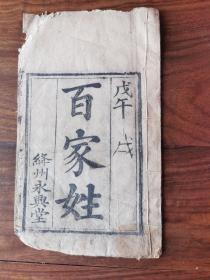 戊午
百家姓
絳州永興堂